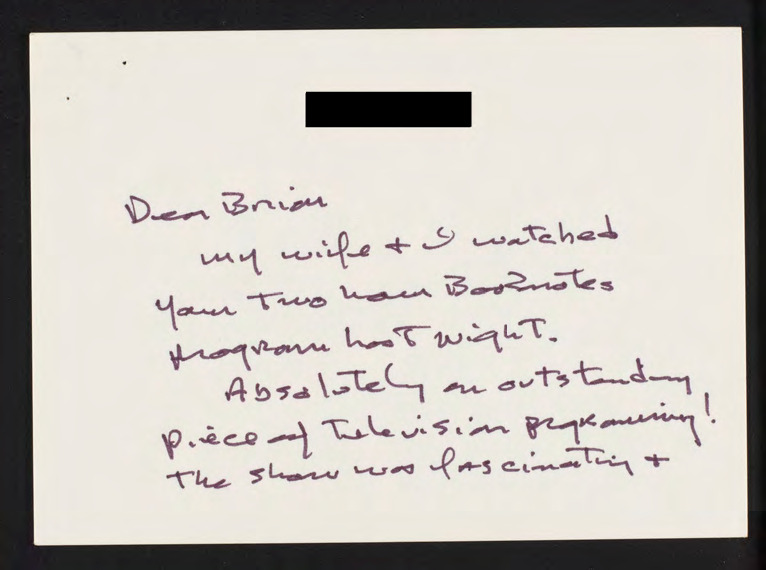 Dear Brian
My wife + I watched
your two hour Booknotes
program last night.
Absolutely an outstanding
piece of television programming!
The show was fascinating +